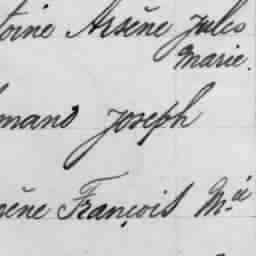 toine Arsène Jules
Marie.
mand Joseph
ène François M.ie